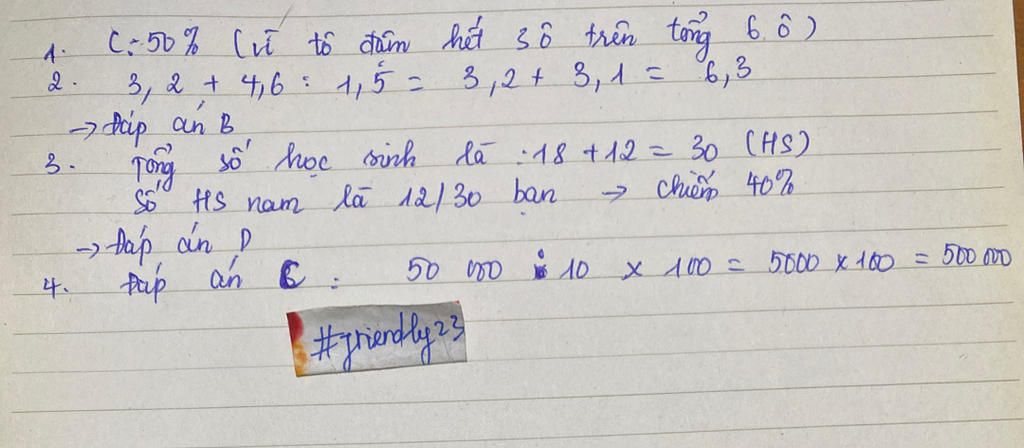 1. C: 50% (vì tô đậm hết 3 ô trên tổng 6 ô)
2. 3,2 + 4,6 : 1,5 = 3,2 + 3,1 = 6,3
→ Đáp án B
3. Tổng số học sinh là : 18 + 12 = 30 (HS)
Số HS nam là 12/30 bạn → chiếm 40%
→ Đáp án D
4. Đáp án C : 50 000 : 10 x 100 = 5000 x 100 = 500 000
#friendly23